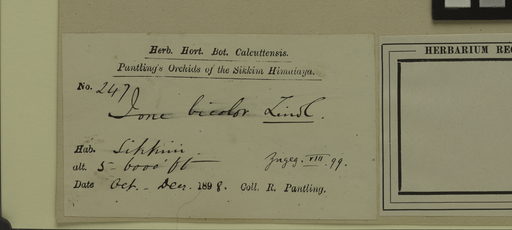 Herb. Hort. Bot. Calcuttensis.
Pantling's Orchids of the Sikkim Himalaya.
No. 247
Ione bicolor Lindl.
Hab. Sikkim.
alt. 5-6000 ft
VIII. 99.
Date Oct. - Decr. 1898. Coll. R. Pantling.
HERBARIUM